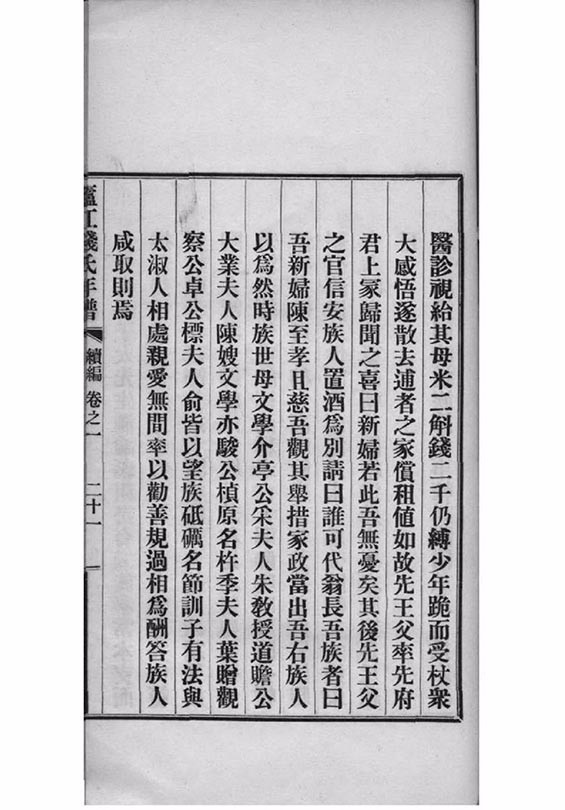 醫診視給其母米二斛錢二千仍縛少年跪而受杖衆
大感悟遂散去逋者之家償租値如故先王父率先府
君上冢歸聞之喜曰新婦若此吾無憂矣其後先王父
之官信安族人置酒爲別請曰誰可代翁長吾族者曰
吾新婦陳至孝且慈吾觀其舉措家政當出吾右族人
以爲然時族世母文學介亭公采夫人朱敎授道贍公
大業夫人陳嫂文學亦駿公楨原名杵季夫人葉贈觀
察公卓公標夫人俞皆以望族砥礪名節訓子有法與
太淑人相處親愛無間率以勸善規過相爲酬答族人
咸取則焉
廬江錢氏年譜
續編
卷之一
二十一